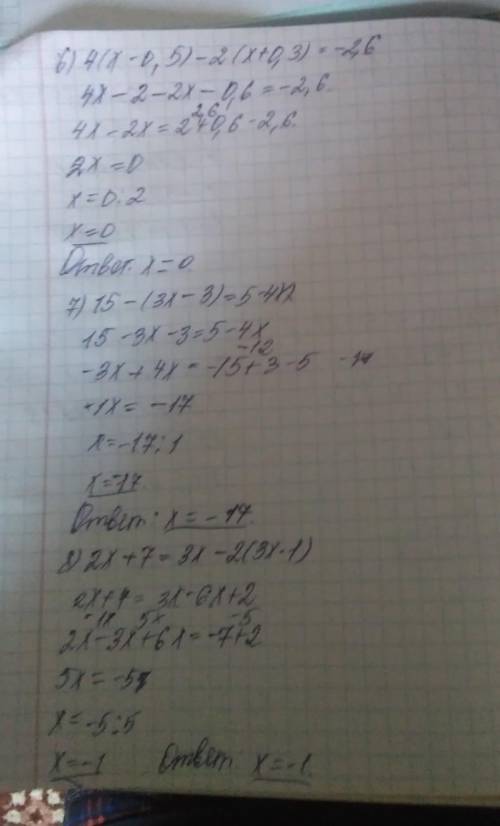 6) 4(x-0,5)-2(x+0,3)=-2,6
4x-2-2x-0,6=-2,6.
2,6
4x-2x=2+0,6-2,6.
2x=0
x=0:2
x=0
Ответ: x=0.
7) 15-(3x-3)=5-4x
15-3x-3=5-4x
-12
-3x+4x=-15+3-5
-1x=-17
x=-17:1
x=-17.
Ответ: x=-17.
8) 2x+7=3x-2(3x-1)
2x+7=3x-6x+2
-1x 5x -5
2x-3x+6x=-7+2
5x=-5
x=-5:5
x=-1 Ответ: x=-1.